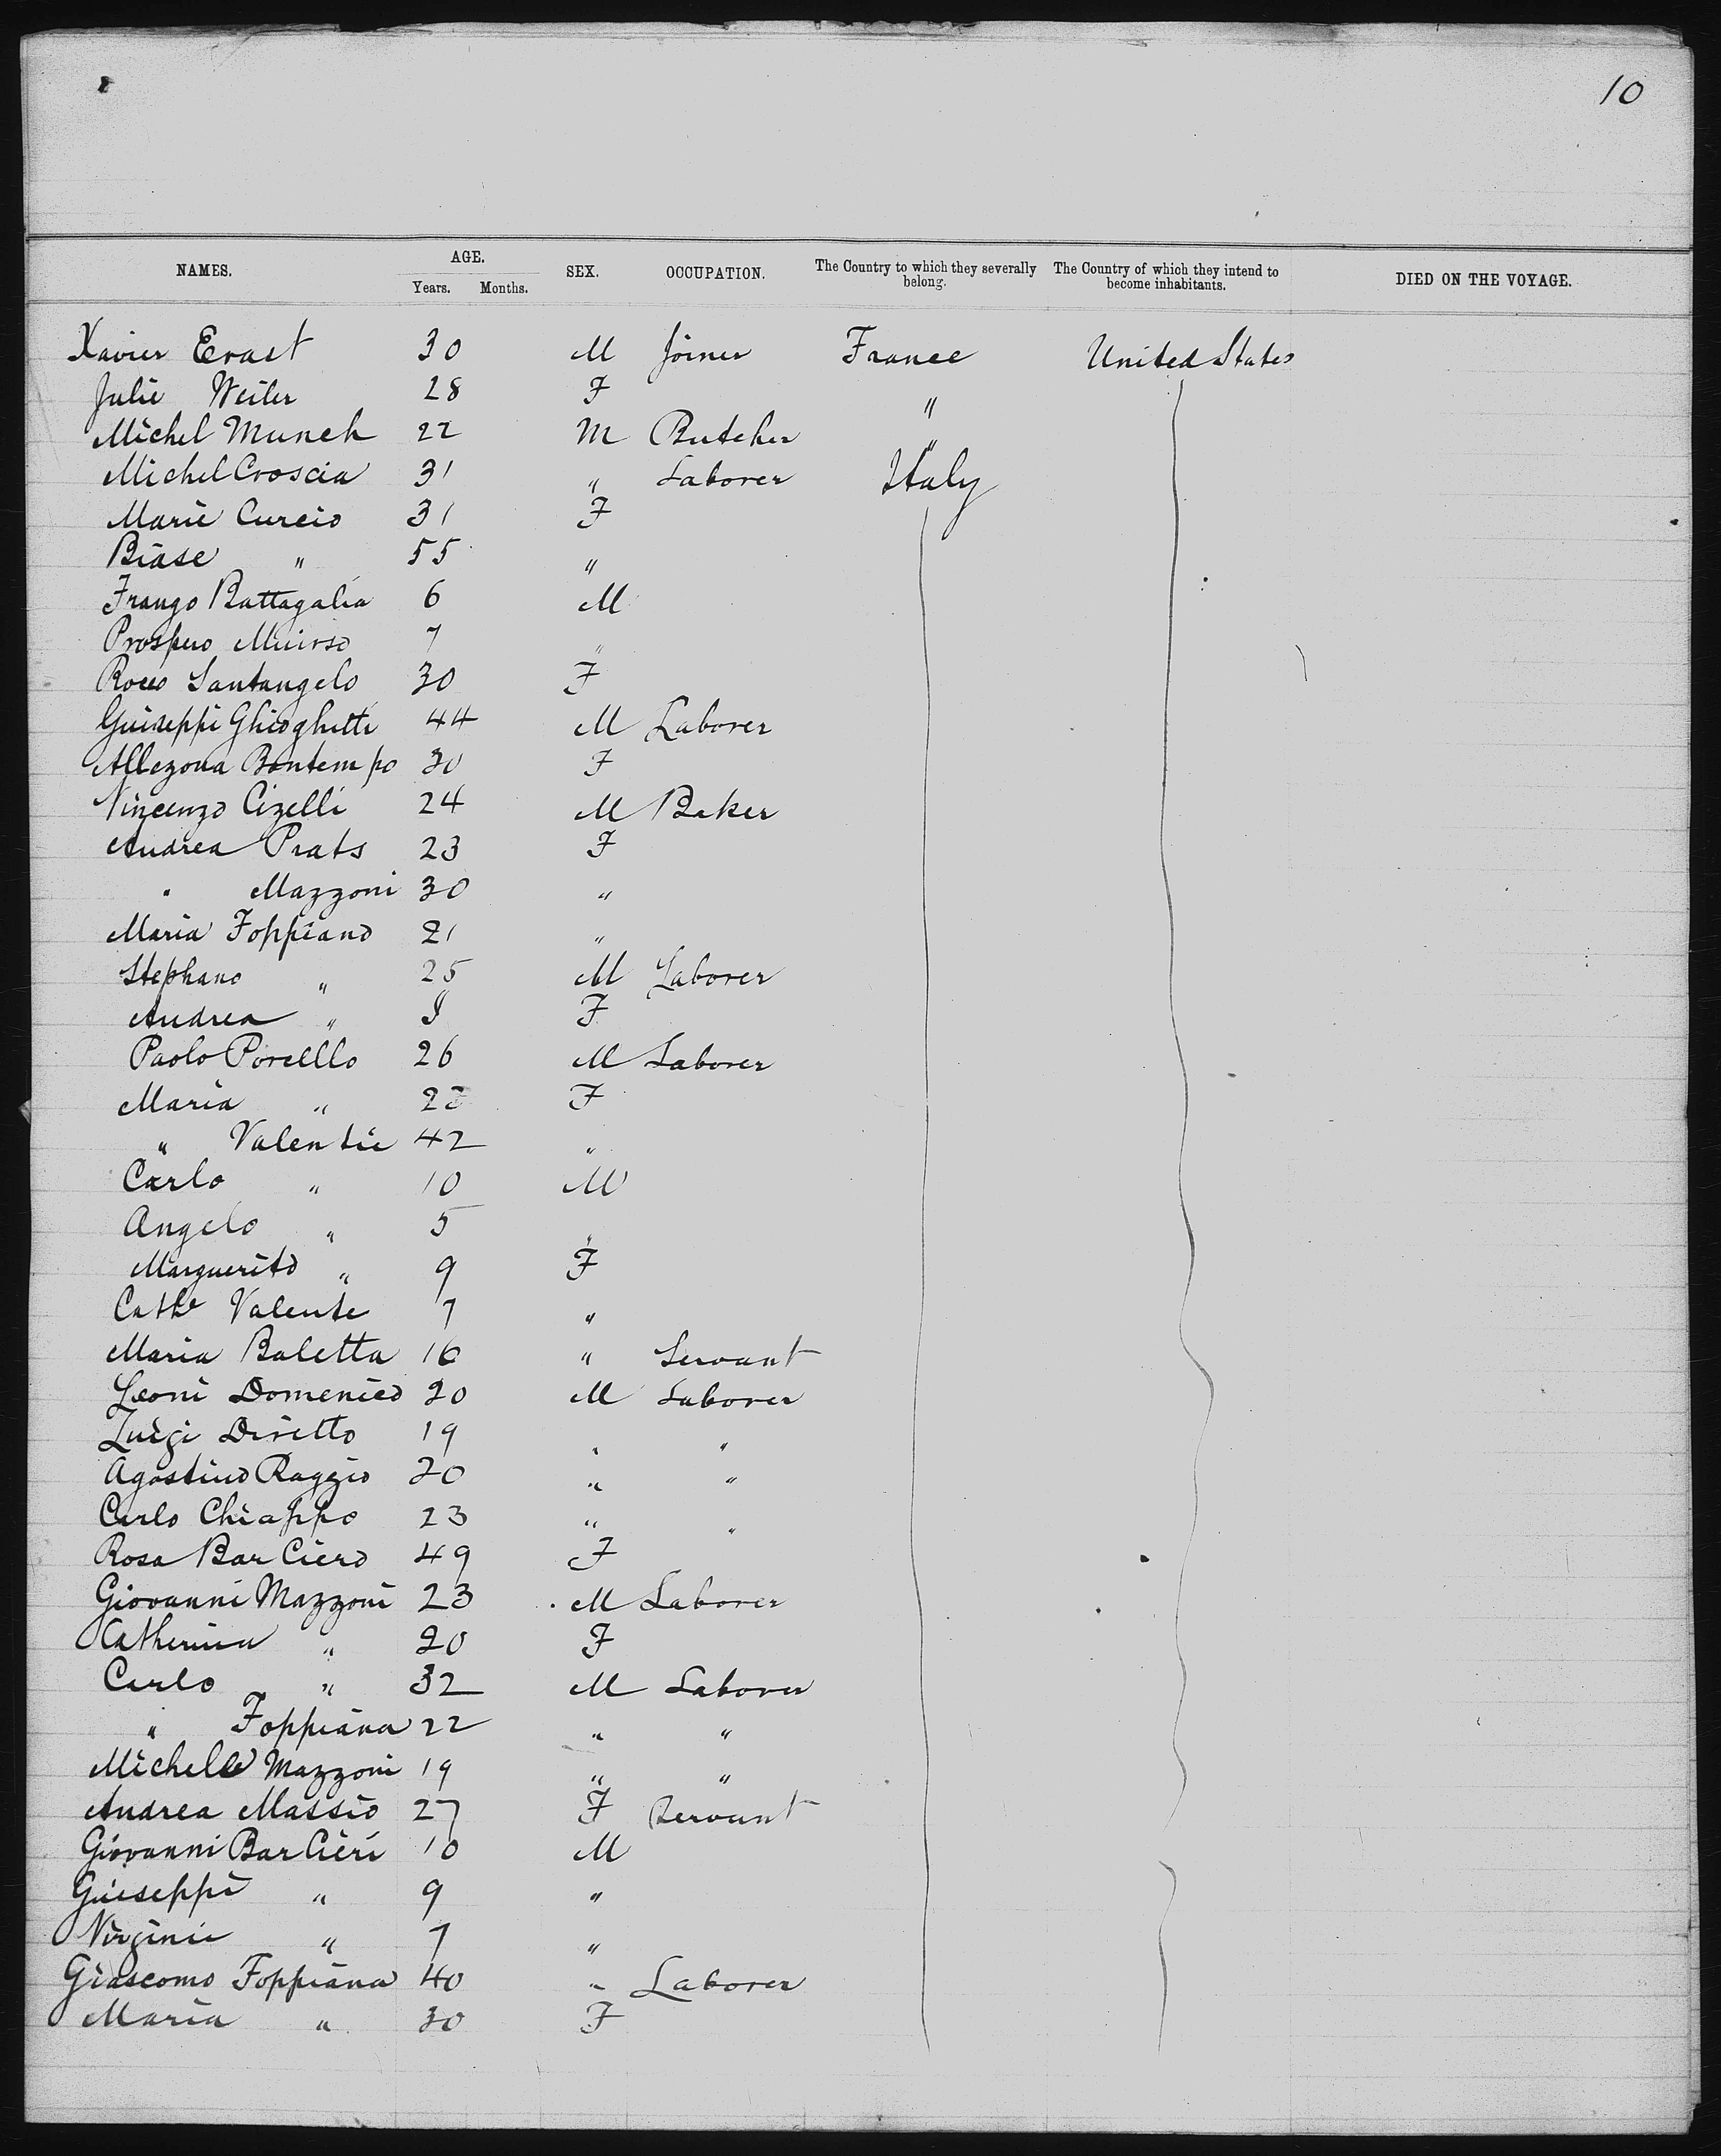 10
NAMES. AGE. Years. Months. SEX. OCCUPATION. The Country to which they severally belong. The Country of which they intend to become inhabitants. DIED ON THE VOYAGE.
Xavier Erast 30 M Joiner France United States
Julie Weiler 28 F "
Michel Munch 22 M Butcher "
Michel Croscia 31 " Laborer Italy
Marie Curcio 31 F
Biase " 55 "
Frango Battagalia 6 M
Prospero 7 "
Rocco Santangelo 30 F
Guiseppi Ghioghitti 44 M Laborer
Allezona Bontempo 30 F
Vincenzo Cizelli 24 M Baker
Andrea Prats 23 F
" Mazzoni 30 "
Maria Foppiano 21 "
Stephano " 25 M Laborer
Andrea " F
Paolo Porcello 26 M Laborer
Maria " F
" Valentie 42 "
Carlo " 10 M
Angelo " 5 "
Marguerito " 9 F
Cathe Valente 7 "
Maria Baletta 16 " Servant
Leoni Domenico 20 M Laborer
Luigi Diretto 19 " "
Agostino Raggio 20 " "
Carlo Chiappo 23 " "
Rosa Bar Ciero 49 F
Giovanni Mazzoni 23 M Laborer
Catherina " 20 F
Carlo " 32 M Laborer
" Foppiana 22 " "
Michele Mazzoni 19 " "
Andrea Massio 27 F Servant
Giovanni Bar Cieri 10 M
Guiseppi " 9 "
Virginie " 7 "
Giascomo Foppiana 40 " Laborer
Maria " 30 F